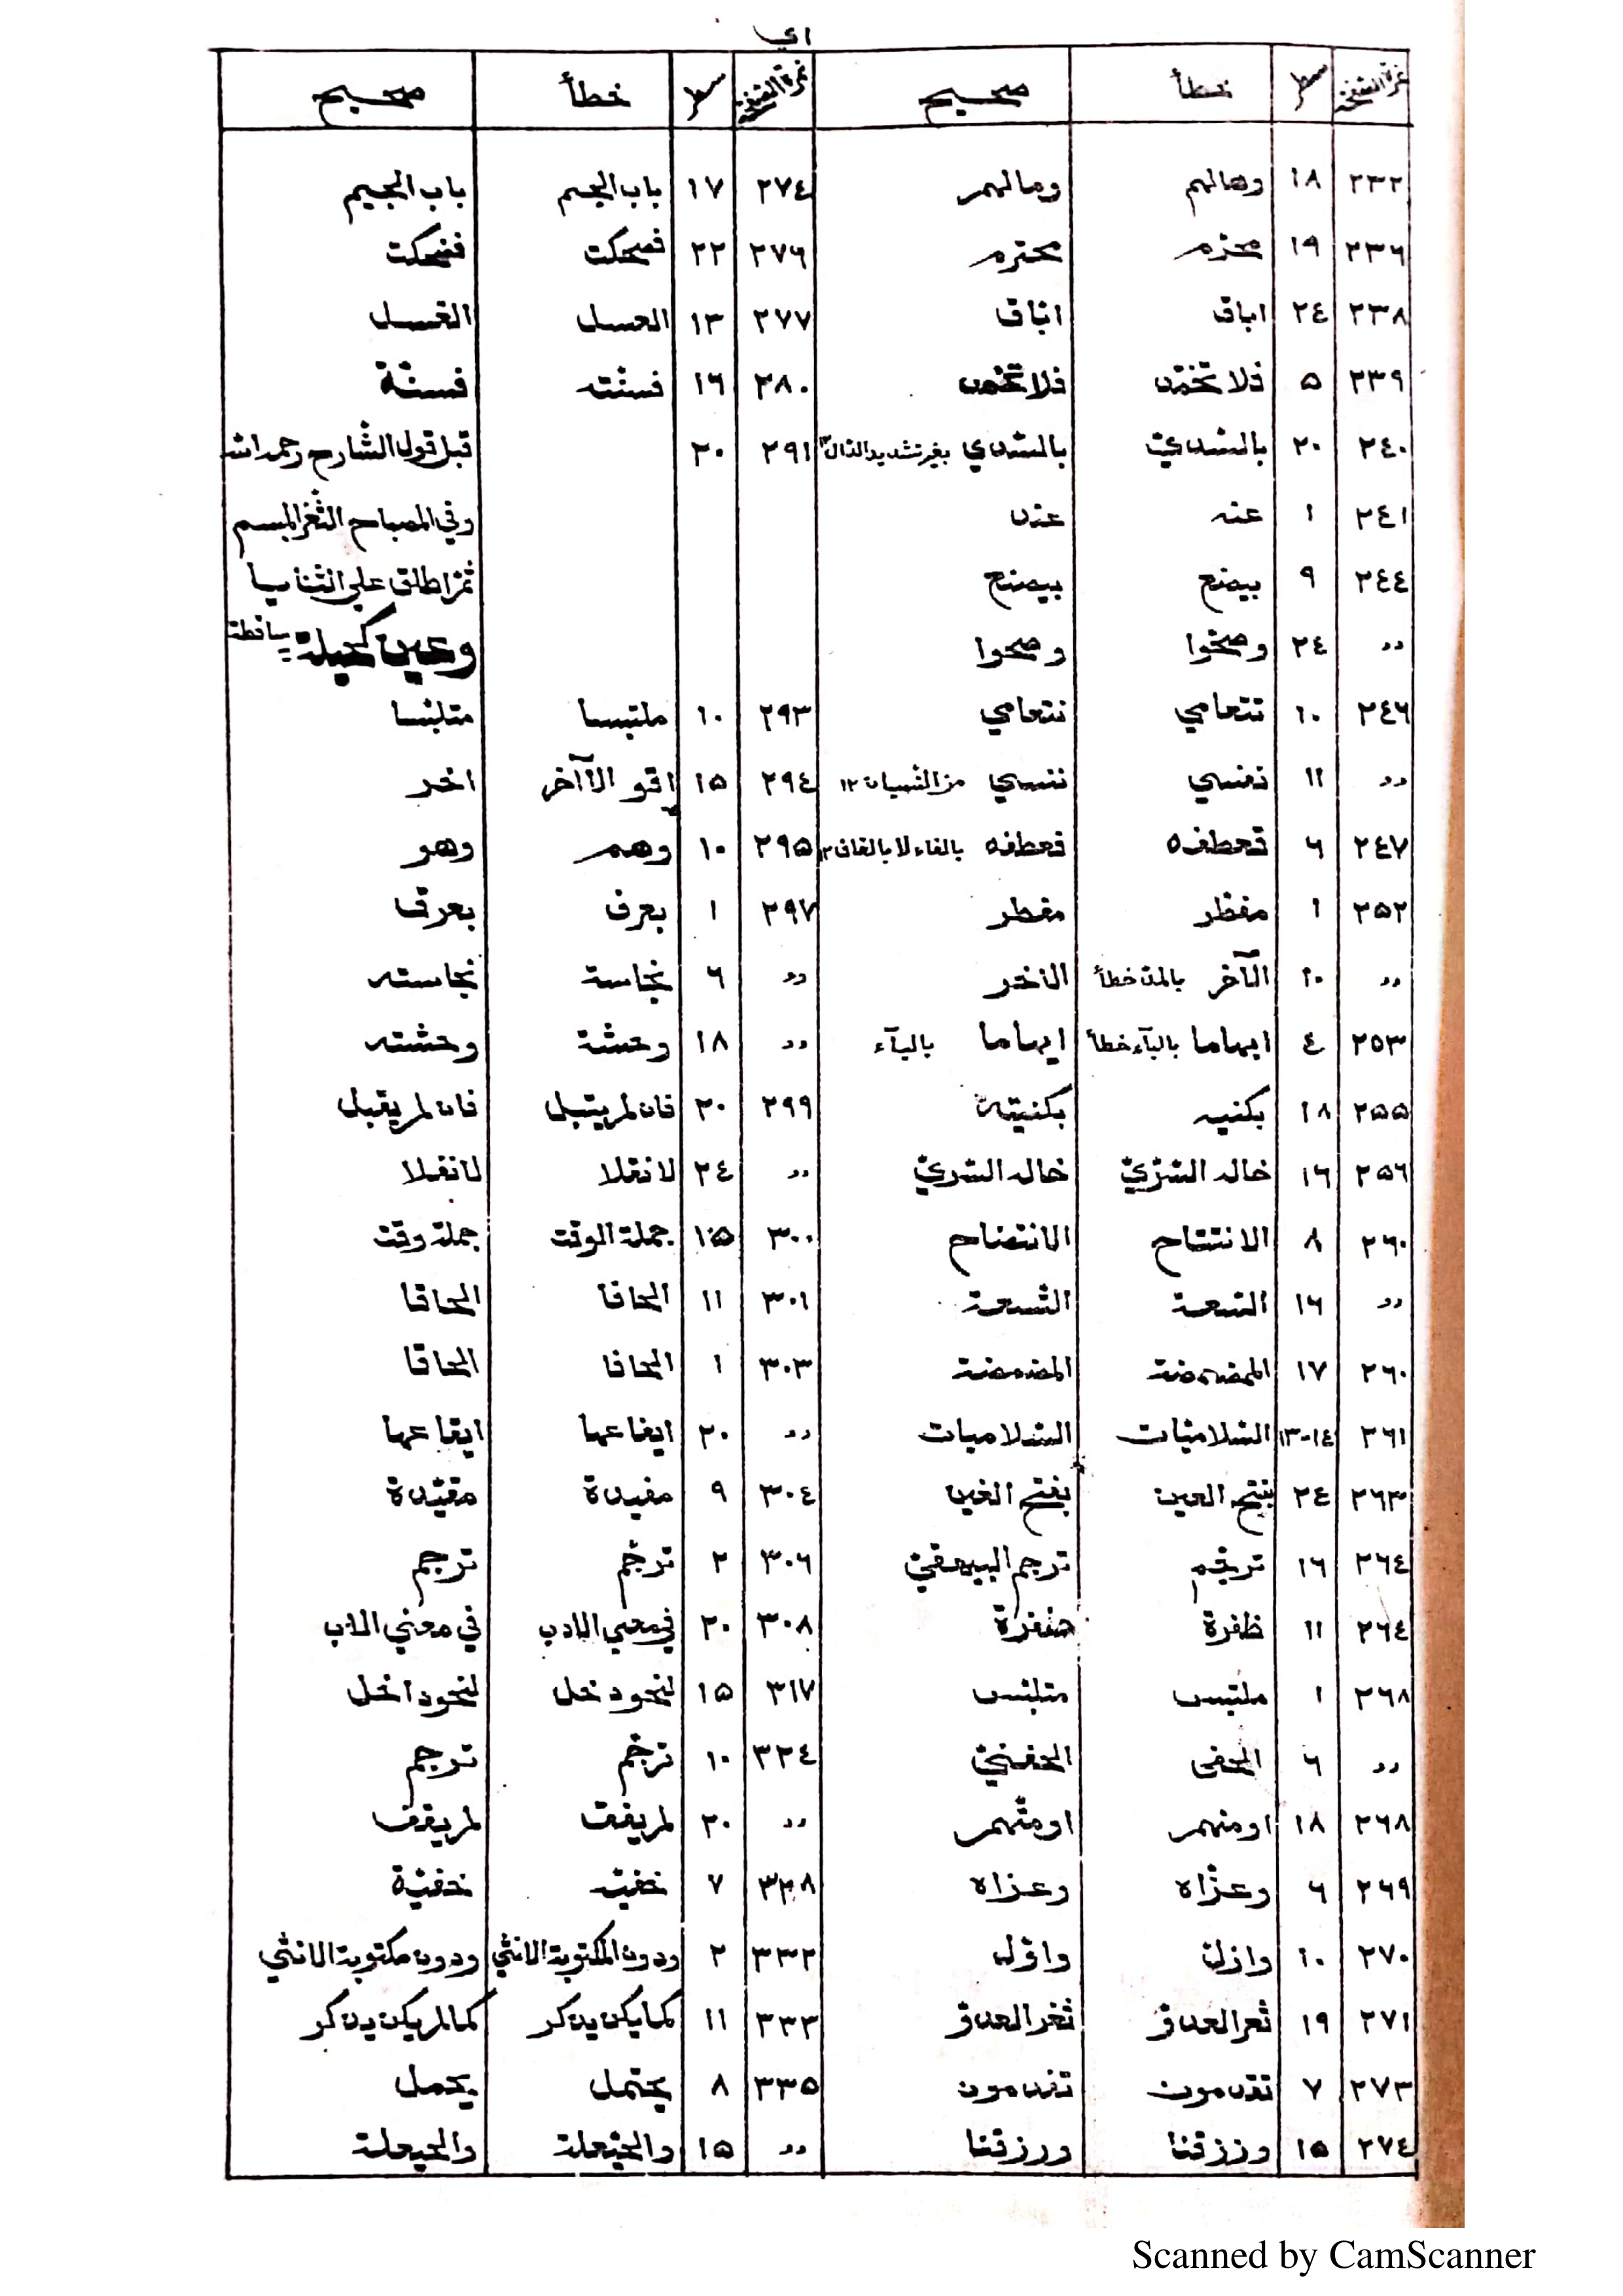 اي
نمرة الصفحة سطر خطأ صحيح نمرة الصفحة سطر خطأ صحيح
٢٣٢ ١٨ وهالهم ومالهم ٢٧٤ ١٧ باب الجيم باب الجيم
٢٣٦ ١٩ محزم محترم ٢٧٦ ٢٢ فصحكت فضحكت
٢٣٨ ٢٤ اباق اتباق ٢٧٧ ١٣ العسل الغسل
٢٣٩ ٥ فلا تختن فلا تخمن ٢٨٠ ١٦ فسنته فسنّة
٢٤٠ ٢٠ بالسّديّ بالسّدي بغير تشديد الدال ١٢ ٢٩١ ٢٠ قبل قول الشارح رحمه الله
٢٤١ ١ عنه عدن وفي المصباح الثغر المبسم
٢٤٤ ٩ بيضع بيصنع ثمّ اطلق علي الثنايا
٫٫ ٢٤ وضحوا وصحوا وعين كحيلة ساقطة
٢٤٦ ١٠ تتعامي نتعامي ٢٩٣ ١٠ ملتبسا متلبّسا
٫٫ ١١ نفسي ننسي من النسيان ١٢ ٢٩٤ ١٥ اقو الاآخر اخر
٢٤٧ ٦ قعطفه فعطفه بالفاء لا بالقاف ١٢ ٢٩٥ ١٠ وهم وهو
٢٥٢ ١ مفظر مفطر ٢٩٧ ١ بعرف بعرق
٫٫ ١٠ الآخر بالمد خطأ الاخر ٫٫ ٦ نجاسة نجاسته
٢٥٣ ٤ ابهاما بالبآء خطأ ايهاما باليآء ٫٫ ١٨ وحشة وحشته
٢٥٥ ١٨ بكنيه بكنيته ٢٩٩ ٢٠ فان لم يتبل فان لم يقبل
٢٥٦ ١٦ خالد السّزيّ خالد السّريّ ٫٫ ٢٤ لا نقلا لا نفلا
٢٦٠ ٨ الانتتاح الانتضاح ٣٠٠ ١٥ جملة الوقت جملة وقت
٫٫ ١٦ السّعة التّسعة ٣٠١ ١١ الحافا الحاقا
٢٦٠ ١٧ الممضمضة المضمضة ٣٠٣ ١ الحافا الحاقا
٢٦١ ١٣-١٤ السّلاميّات السّلاميات ٫٫ ٢٠ ايفاعها ايقاعها
٢٦٣ ٢٤ بفتح العين بفتح الغين ٣٠٤ ٩ مفيدة مقيّدة
٢٦٤ ١٦ ترجم البيهقيّ ٣٠٦ ٢ ترخم ترجم
٢٦٤ ١١ ظفرة ضفرة ٣٠٨ ٢٠ في معني الادب في معني الاب
٢٦٨ ١ ملتبس متلبّس ٣١٧ ١٥ لنحو دخل لنحو داخل
٫٫ ٦ الحفى الحفنيّ ٣٢٤ ١٠ ترخم ترجم
٢٦٨ ١٨ اومنهم اومتّهم ٫٫ ٢٠ لم يفق لم يقف
٢٦٩ ٦ وعزّاه وعزاه ٣٢٨ ٧ خفيّه خفيّة
٢٧٠ ١٠ وازل واوّل ٣٣٢ ٢ ودون المكتوبة الانثي ودون مكتوبة الانثي
٢٧١ ١٩ ثعر العدوّ ثغر العدوّ ٣٣٣ ١١ كما يكن يدكر كما لم يكن يدكر
٢٧٣ ٧ تقدمون تقدمون ٣٣٥ ٨ يحتمل يحمل
٢٧٤ ١٥ وززقنا ورزقنا ٫٫ ١٥ والحيّعلة والحيعلة
Scanned by CamScanner